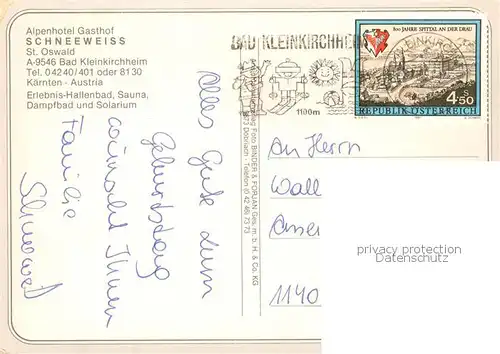 Alpenhotel Gasthof
SCHNEEWEISS
St. Oswald
A-9546 Bad Kleinkirchheim
Tel. 04240/401 oder 8130
Kärnten - Austria
Erlebnis-Hallenbad, Sauna,
Dampfbad und Solarium
BAD KLEINKIRCHHEIM
1100m
800 JAHRE SPITTAL AN DER DRAU
KLEINKIRCH
4 50
REPUBLIK ÖSTERREICH
Alles Gute zum
Geburtstag
wünscht Ihnen
Familie
Foto BINDER & FORJAN Ges. m. b. H. & Co. KG
Döbriach - Telefon (0 42 46) 73 73
An Herrn
Wall
1140
privacy protection
Datenschutz